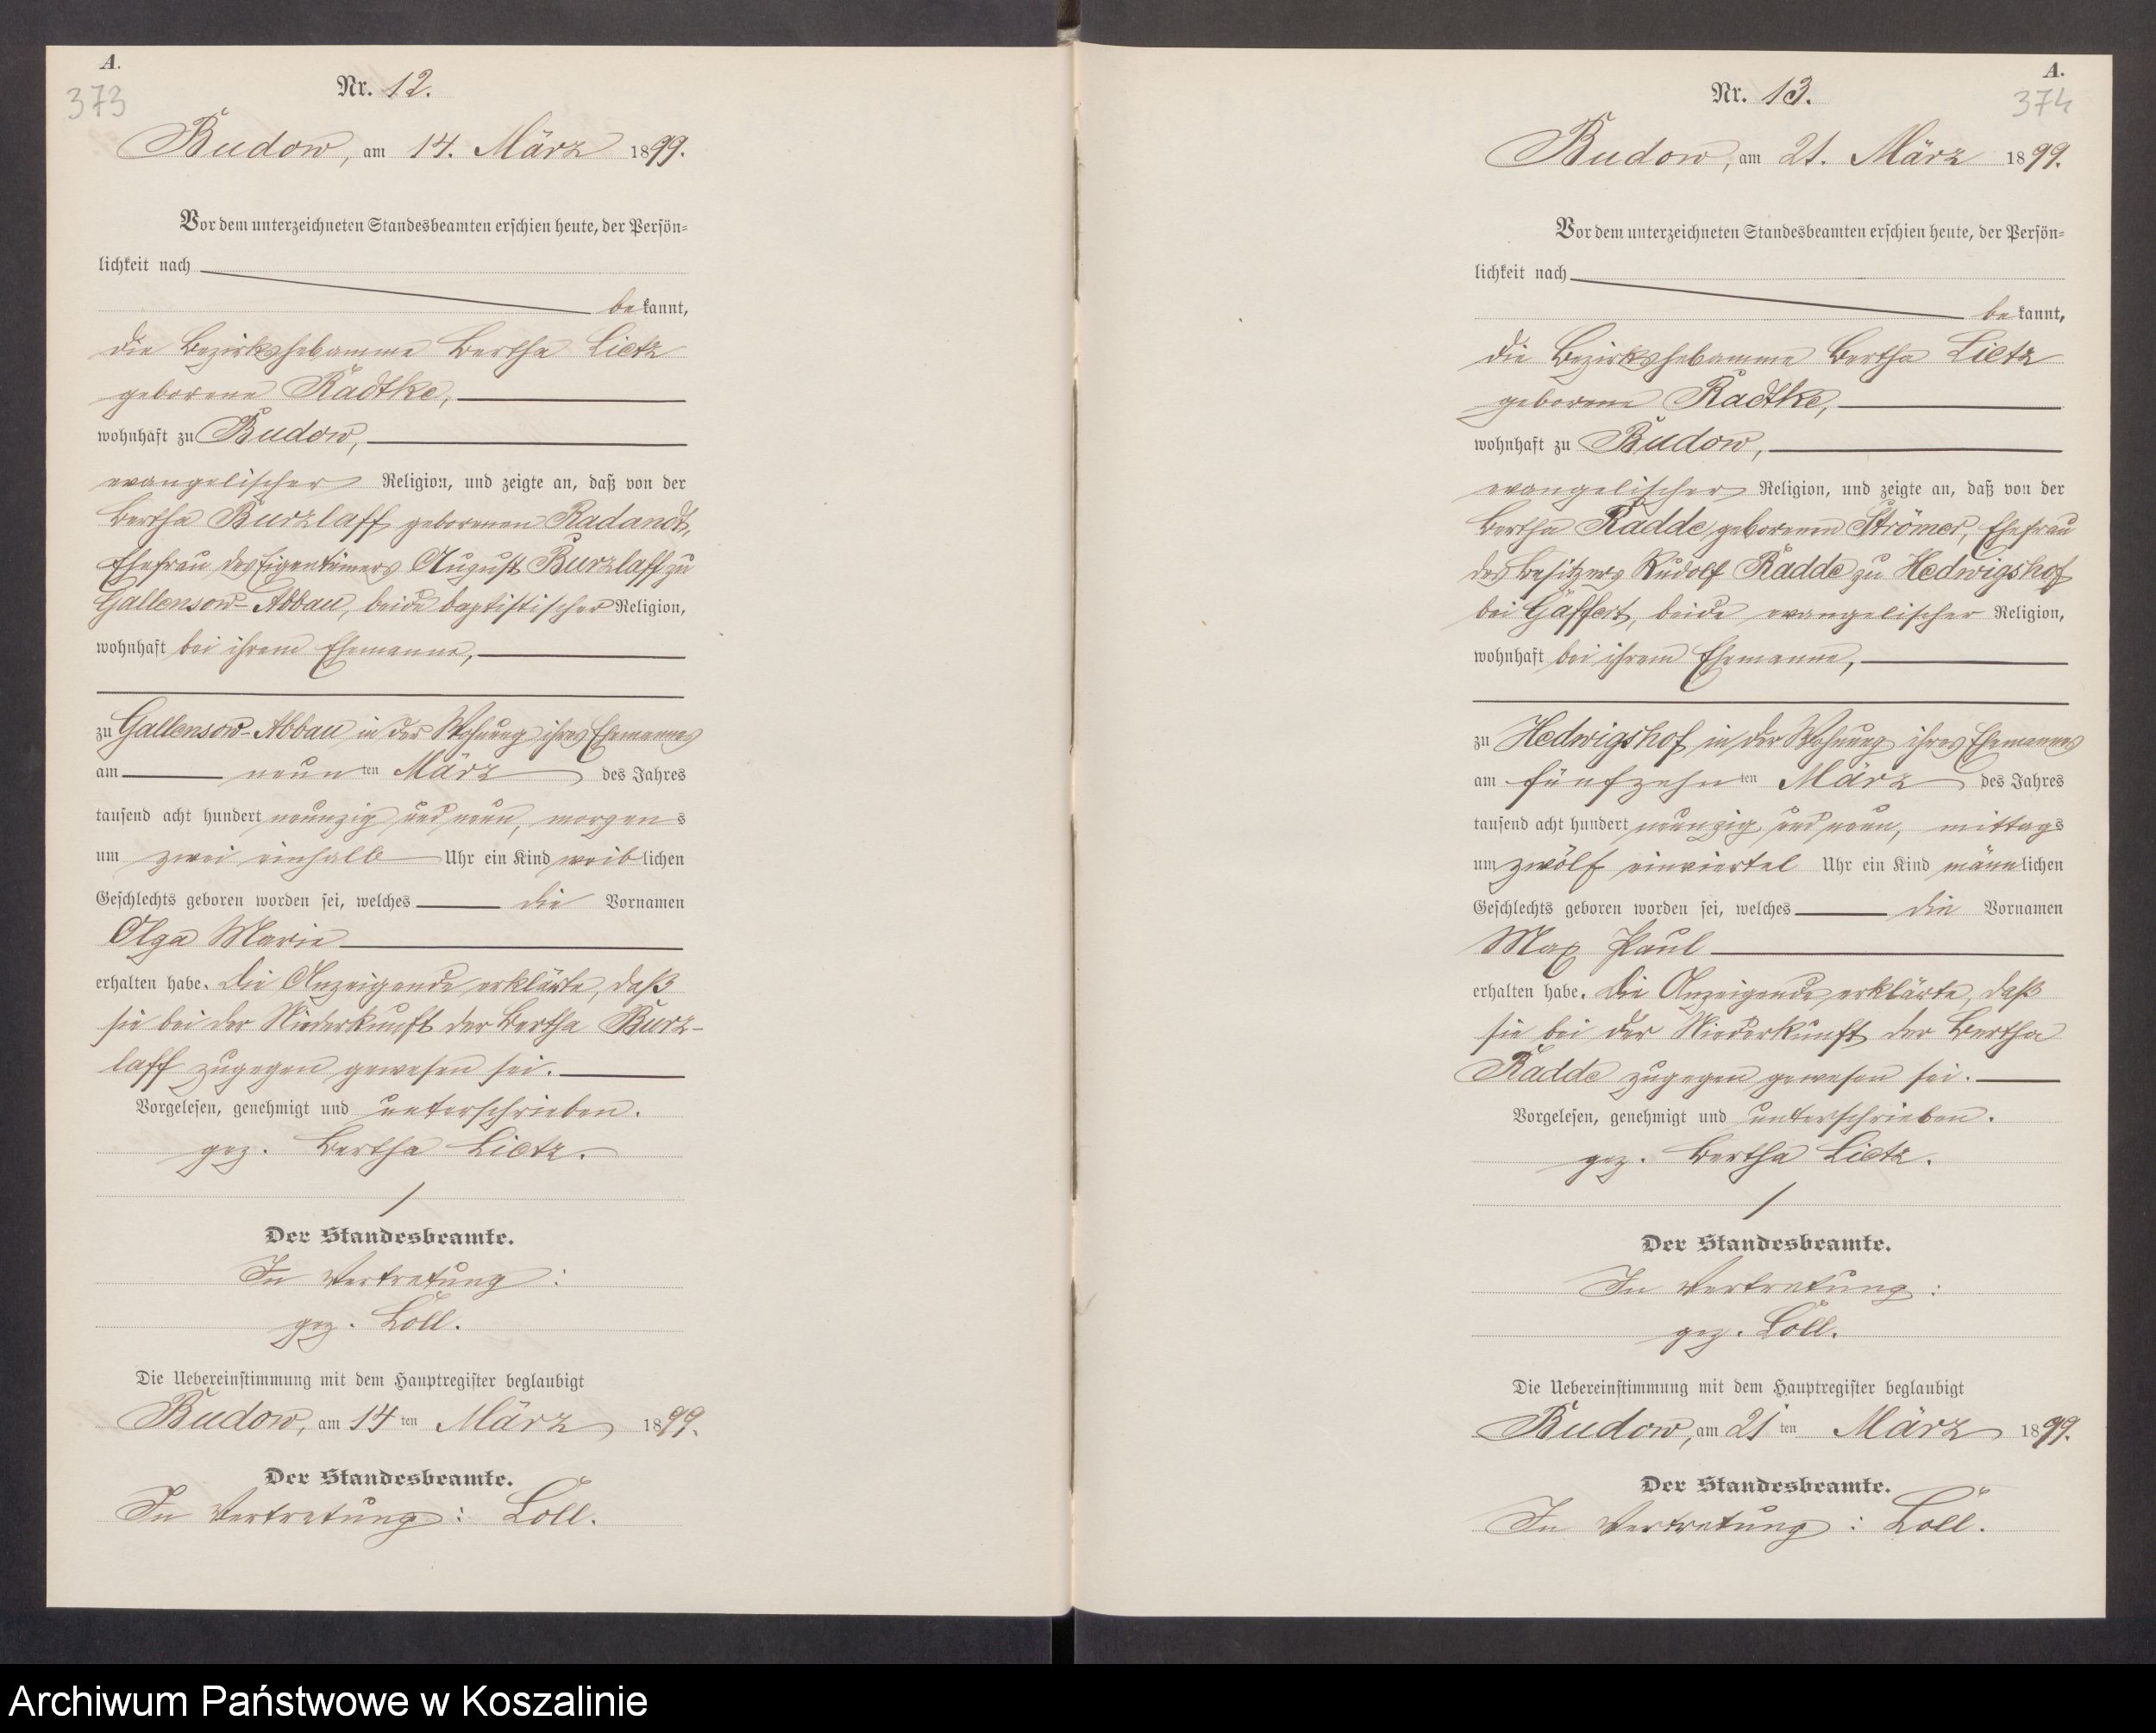 A.
373
Nr. 12.
Budow, am 14. März 1899.
Vor dem unterzeichneten Standesbeamten erschien heute, der Persön-
lichkeit nach
bekannt,
die Bezirkshebamme Bertha Lietz
geborene Radtke,
wohnhaft zu Budow,
evangelischer Religion, und zeigte an, daß von der
Bertha Burzlaff geborenen Radandt,
Ehefrau des Eigentümers August Burzlaff zu
Gallensow-Abbau, beide baptistischer Religion,
wohnhaft bei ihrem Ehemanne,
zu Gallensow-Abbau in der Wohnung ihres Ehemannes
am neunten März des Jahres
tausend acht hundert neunzig und neun, morgens
um zwei einhalb Uhr ein Kind weiblichen
Geschlechts geboren worden sei, welches die Vornamen
Olga Marie
erhalten habe. Die Anzeigende erklärte, daß
sie bei der Niederkunft der Bertha Burz-
laff zugegen gewesen sei.
Vorgelesen, genehmigt und unterschrieben.
gez. Bertha Lietz.
Der Standesbeamte.
In Vertretung:
gez. Löll.
Die Uebereinstimmung mit dem Hauptregister beglaubigt
Budow, am 14ten März 1899.
Der Standesbeamte.
In Vertretung: Löll.
A.
374
Nr. 13.
Budow, am 21. März 1899.
Vor dem unterzeichneten Standesbeamten erschien heute, der Persön-
lichkeit nach
bekannt,
die Bezirkshebamme Bertha Lietz
geborene Radtke,
wohnhaft zu Budow,
evangelischer Religion, und zeigte an, daß von der
Bertha Radde geborenen Strömer, Ehefrau
des Besitzers Rudolf Radde zu Hedwigshof
bei Gaffert, beide evangelischer Religion,
wohnhaft bei ihrem Ehemanne,
zu Hedwigshof in der Wohnung ihres Ehemannes
am fünfzehnten März des Jahres
tausend acht hundert neunzig und neun, mittags
um zwölf einviertel Uhr ein Kind männlichen
Geschlechts geboren worden sei, welches die Vornamen
Max Paul
erhalten habe. Die Anzeigende erklärte, daß
sie bei der Niederkunft der Bertha
Radde zugegen gewesen sei.
Vorgelesen, genehmigt und unterschrieben.
gez. Bertha Lietz.
Der Standesbeamte.
In Vertretung:
gez. Löll.
Die Uebereinstimmung mit dem Hauptregister beglaubigt
Budow, am 21ten März 1899.
Der Standesbeamte.
In Vertretung: Löll.
Archiwum Państwowe w Koszalinie